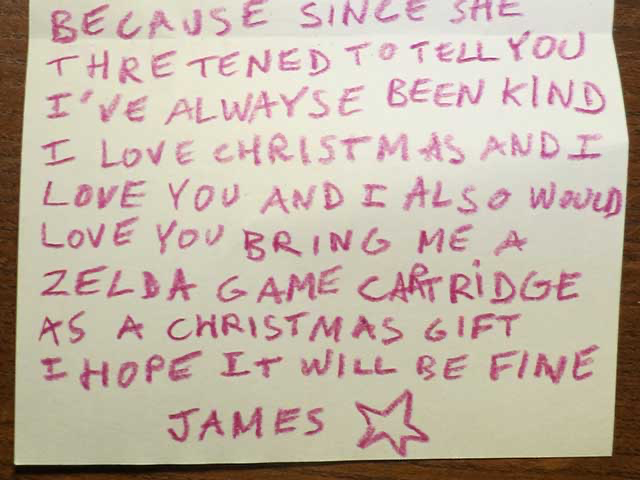 BECAUSE SINCE SHE
THRETENED TO TELL YOU
I'VE ALWAYSE BEEN KIND
I LOVE CHRISTMAS AND I
LOVE YOU AND I ALSO WOULD
LOVE YOU BRING ME A
ZELDA GAME CARTRIDGE
AS A CHRISTMAS GIFT
I HOPE IT WILL BE FINE
JAMES